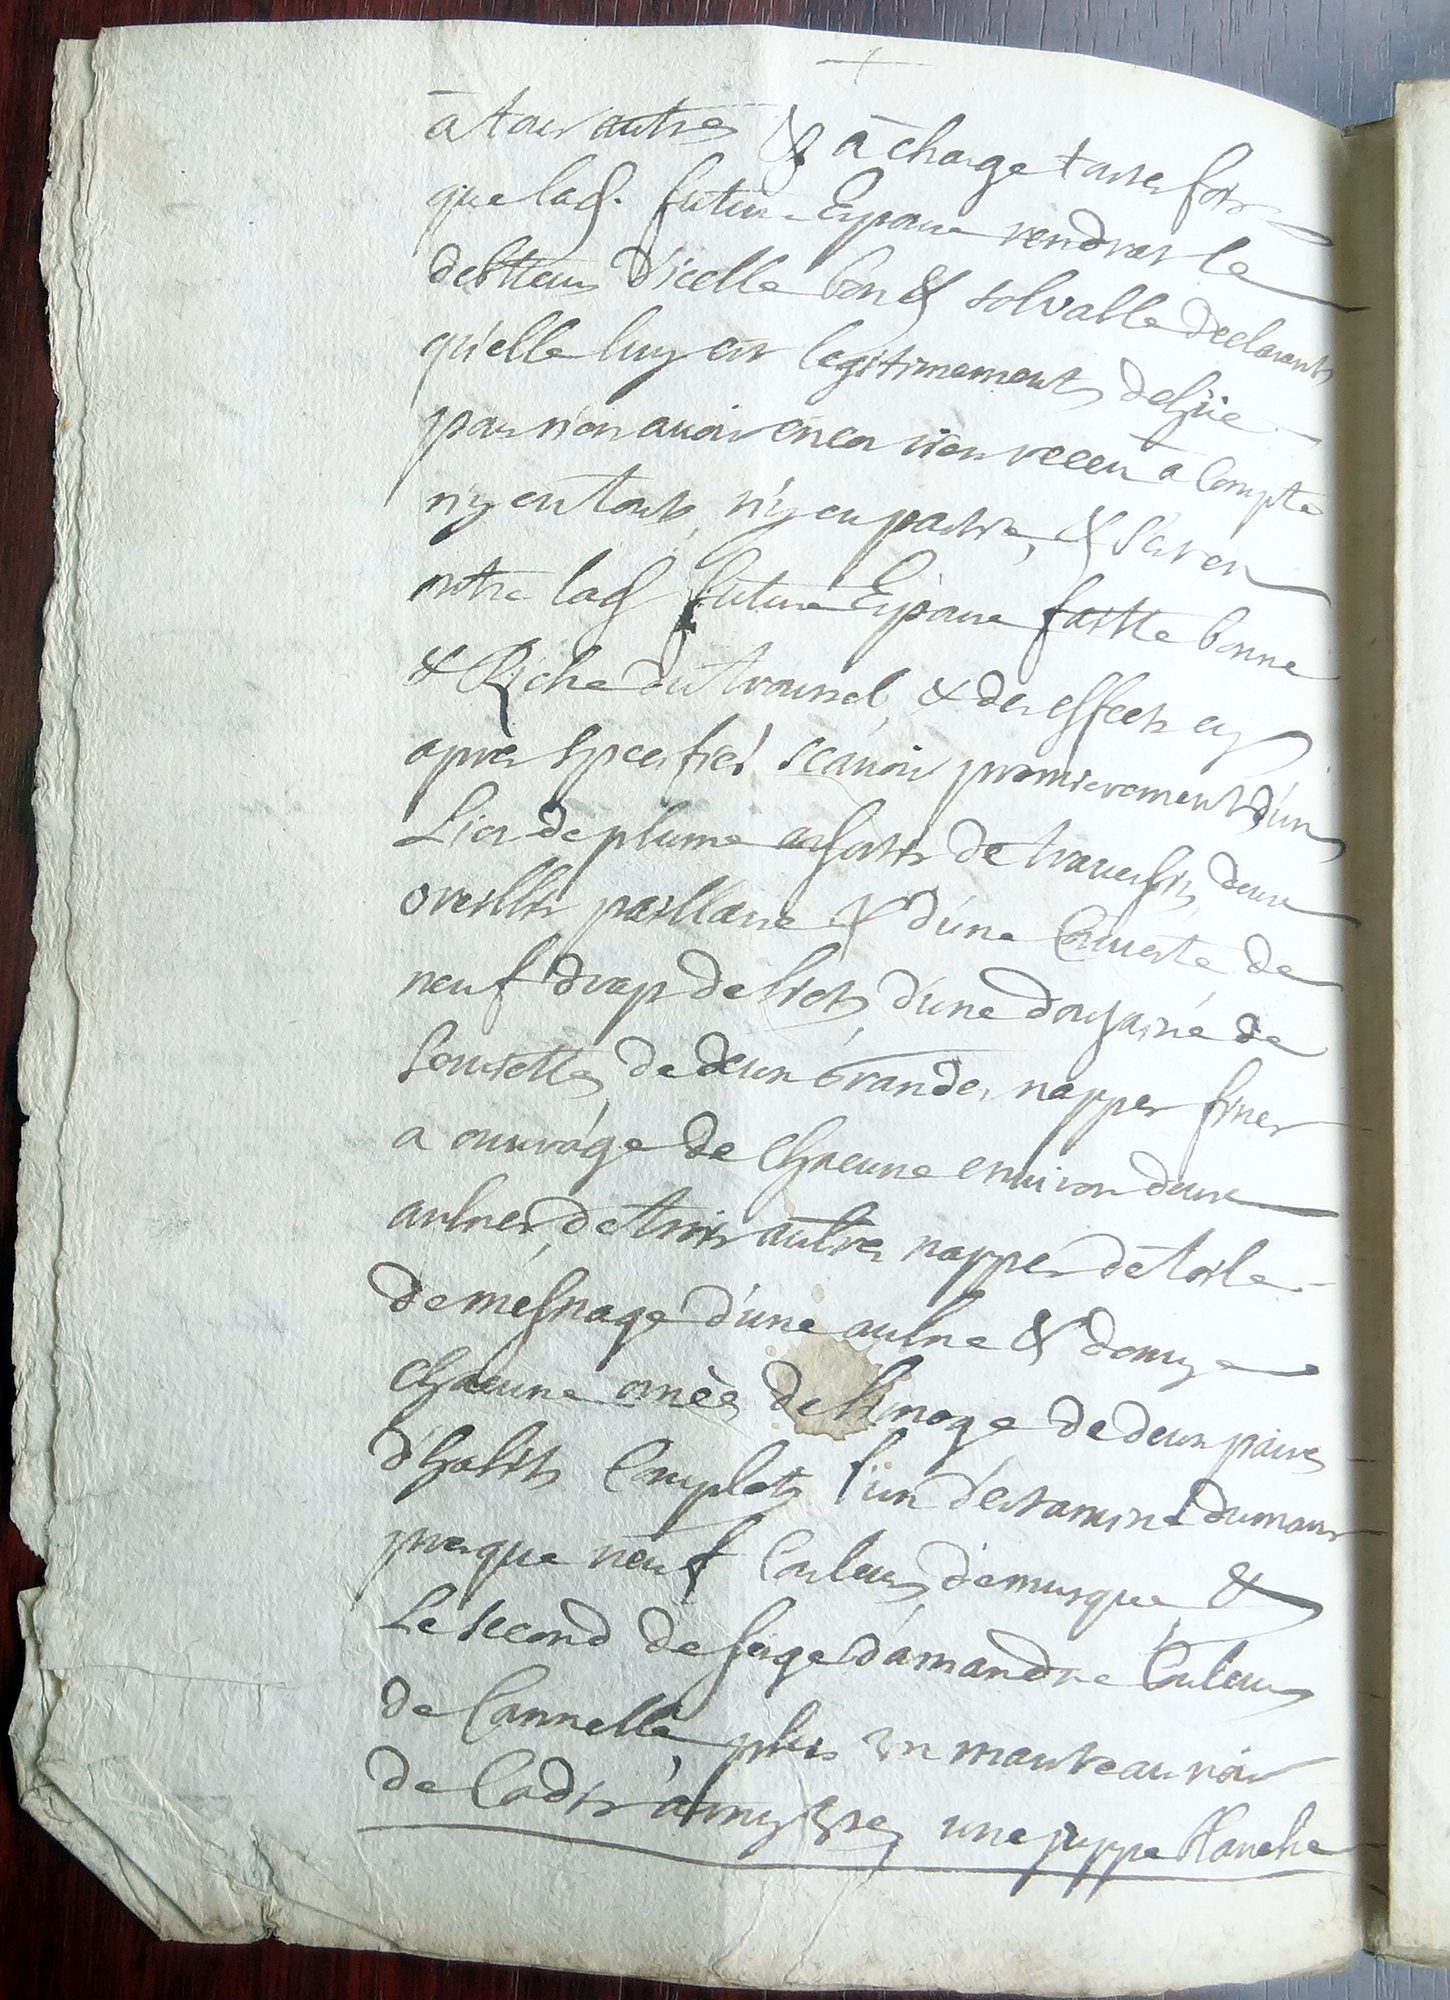 à tous autres & à charge toutes fois
que lad. future Espouse rendrat le
debtteurs d'icelle bon & solvable declarants
qu'elle luy est legitimements dehüe
pour n'en auoir encor rien receeu à Compte
n'y en touts, n'y en partie, & serat en
outre lad future Espouse faitte bonne
& Riche du trousset, & des effects cy
après specifiés scauoir premierement d'un
Lict de plume assortis de trauersin, deux
oreillés paillasse & d'une Couuerte de
neuf drap de licts, d'une dousaine de
seruiettes, de deux Grandes nappes fines
a ouurage de chacune enuiron deux
aulnes, de trois autres nappes de toile
de mesnage d'une aulne & demye
chacune de linage de deux paires
d'habits Complets l'un d'estamine dumans
presque neuf Couleurs de musque, &
Le second de serge d'amandre Couleurs
de Cannelle, plus un manteau noir
de Cadis à my usés, une juppe blanche